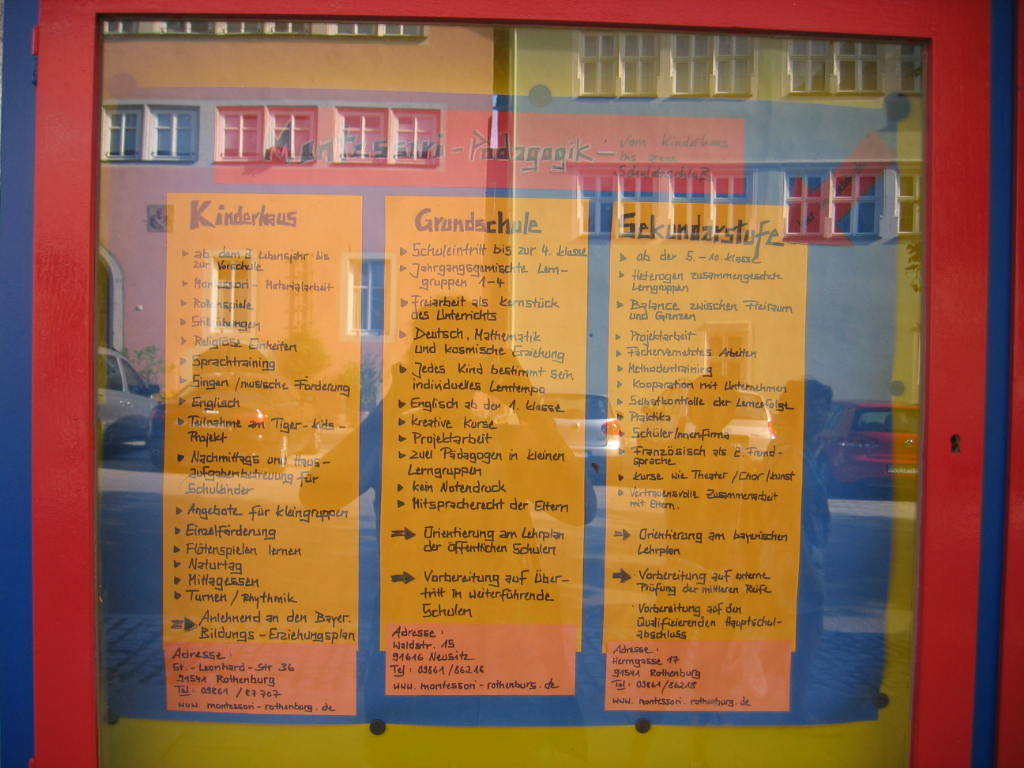 Montessori - Pädagogik -
vom Kinderhaus
bis zum
Schulabschluß
Kinderhaus
▸ ab dem 3. Lebensjahr bis
zur Vorschule
▸ Montessori - Materialarbeit
▸ Rollenspiele
▸ Stilleübungen
▸ Religiöse Einheiten
▸ Sprachtraining
▸ Singen / musische Förderung
▸ Englisch
▸ Teilnahme am Tiger-kids-
Projekt
▸ Nachmittags und Haus-
aufgabenbetreuung für
Schulkinder
▸ Angebote für Kleingruppen
▸ Einzelförderung
▸ Flötenspielen lernen
▸ Naturtag
▸ Mittagessen
▸ Turnen / Rhythmik
➔ Anlehnend an den Bayer.
Bildungs - Erziehungsplan
Adresse:
St.-Leonhard-Str 36
91541 Rothenburg
Tel: 09861 / 87707
www. montessori - rothenburg. de
Grundschule
▸ Schuleintritt bis zur 4. klasse
▸ Jahrgangsgemischte Lern-
gruppen 1-4
▸ Freiarbeit als Kernstück
des Unterrichts
▸ Deutsch, Mathematik
und kosmische Erziehung
▸ Jedes Kind bestimmt sein
individuelles Lerntempo
▸ Englisch ab der 1. klasse
▸ kreative Kurse
▸ Projektarbeit
▸ zwei Pädagogen in kleinen
Lerngruppen
▸ kein Notendruck
▸ Mitspracherecht der Eltern
➔ Orientierung am Lehrplan
der öffentlichen Schulen
➔ Vorbereitung auf Über-
tritt in weiterführende
Schulen
Adresse:
Waldstr. 15
91616 Neusitz
Tel: 09861/86218
www. montessori - rothenburg. de
Sekundarstufe
▸ ab der 5. - 10. klasse
▸ Heterogen zusammengesetzte
Lerngruppen
▸ Balance zwischen Freiraum
und Grenzen
▸ Projektarbeit
▸ Fächervernetztes Arbeiten
▸ Methodentraining
▸ Kooperation mit Unternehmen
▸ Selbstkontrolle der Lernerfolge
▸ Praktika
▸ Schüler/Innenfirma
▸ Französisch als 2. Fremd-
sprache
▸ Kurse wie Theater / Chor / Kunst
▸ Vertrauensvolle Zusammenarbeit
mit Eltern.
➔ Orientierung am bayerischen
Lehrplan
➔ Vorbereitung auf externe
Prüfung der mittleren Reife
Vorbereitung auf den
Qualifizierenden Hauptschul-
abschluss
Adresse:
Herrngasse 17
91541 Rothenburg
Tel: 09861/86218
www. montessori. rothenburg. de